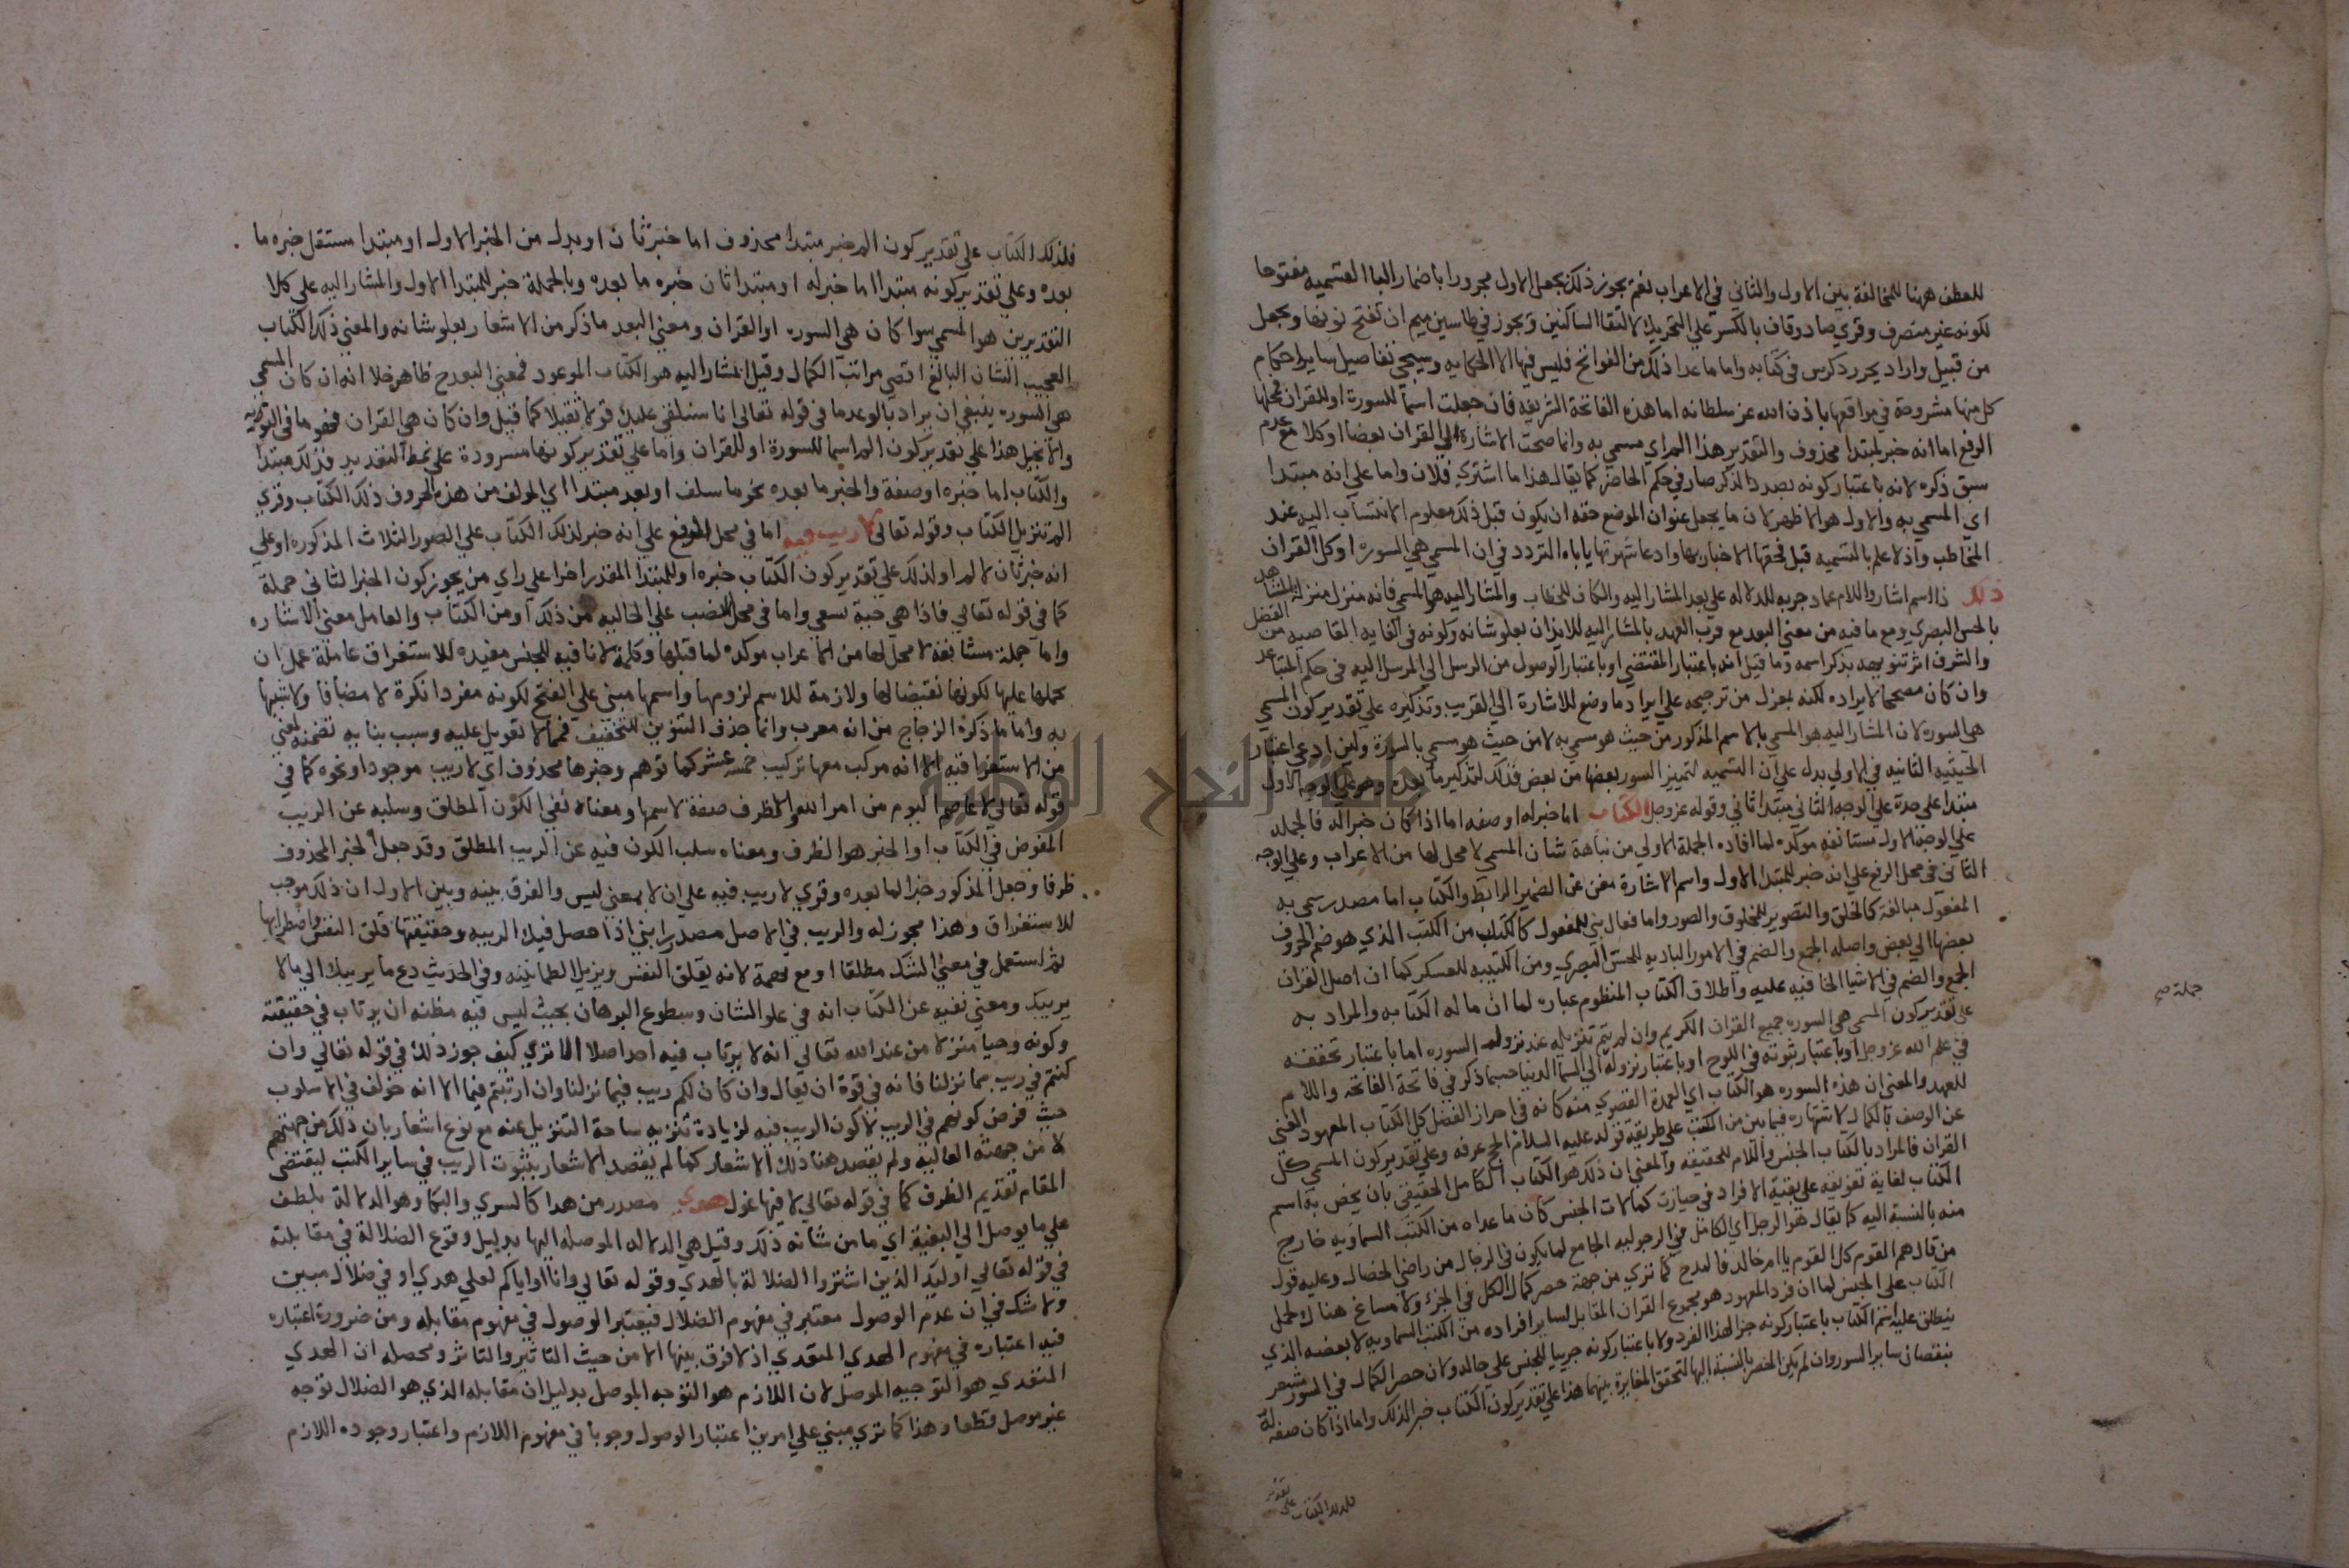 للعطف ههنا للمخالفة بين الاول والثاني في الاعراب نعم يجوز ذلك بجعل الاول مجرورا باضمار البا القسميه مفتوحا
لكونه غير منصرف وقري صاد وقاف بالكسر علي التحريك لالتقا الساكنين ويجوز في طاسين ميم ان تفتح نونها وتجعل
من قبيل دارابجرد ذكره س في كتابه واما ما عدا ذلك من الفواتح فليس فيها الا الحكايه وسيجي تفاصيل ساير احكام
كل منها مشروحة في مواقعها باذن الله عز سلطانه اما هذه الفاتحة الشريفه فان جعلت اسما للسورة او للقران فمحلها
الرفع اما انه خبر لمبتدا محذوف والتقدير هذا الم اي مسمي به وانما صحت الاشارة الي القران بعضا او كلا مع عدم
سبق ذكره لانه باعتبار كونه بصدد الذكر صار في حكم الحاضر كما يقال هذا ما اشتري فلان واما علي انه مبتدا
اي المسمي به والاول هو الاظهر لان ما يجعل عنوان الموضع حقه ان يكون قبل ذلك معلوم الانتساب اليه عند
المخاطب واذ لا علم بالتسميه قبل فحقها الاخبار بها وادعا شهرتها ياباه التردد في ان المسمي هي السوره او كل القران
ذلك ذا اسم اشار واللام عماد جر به للدلاله علي بعد المشار اليه والكاف للخطاب والمشار اليه هو المسمي فانه منزل منزلة المشاهد
بالحس البصري ومع ما فيه من معني البعد مع قرب العهد بالمشار اليه للايذان بعلو شانه وكونه في الغايه القاصيه من الفضل
والشرف اثر تنويهه بذكر اسمه وما قيل انه باعتبار المقتضي او باعتبار الوصول من المرسل الي المرسل اليه في حكم المتباعد
وان كان مصححا لايراده لكنه بمعزل من ترجيحه علي ايراد ما وضع للاشارة الي القريب وتذكيره علي تقدير كون المسمي
هي السوره لان المشار اليه هو المسمي بالاسم المذكور من حيث هو مسمي به لا من حيث هو مسمي بالسورة ولين ادعي اعتبار
الحيثيه الثانيه في الاولي بدل علي ان التسميه لتمييز السور بعضها من بعض فذلك لتذكير ما بعده وهو علي الوجه الاول
مبتدا علي حدة علي الوجه الثاني مبتدا ثاني وقوله عز وجل الكتاب اما خبر له او صفه اما اذا كان خبرا له فالجمله
علي الوجه الاول مستانفه موكده لما افاده الجملة الاولي من نباهة شان المسمي لا محل لها من الاعراب وعلي الوجه
الثاني في محل الرفع علي انه خبر للمبتدا الاول واسم الاشارة مغن عن الضمير الرابط والكتاب اما مصدر سمي به
المفعول مبالغة كالخلق والتصوير للمخلوق والمصور واما فعال بني للمفعول كاللباس من الكتب الذي هو ضم الحروف
بعضها الي بعض واصله الجمع والضم في الامور الباديه للحس البصري ومن الكتيبه للعسكر كما ان اصل القران
الجمع والضم في الاشيا الخافيه عليه واطلاق الكتاب المنظوم عباره لما ان ماله الكتابه والمراد به
جملة صح
علي تقدير كون المسمي هي السوره جميع القران الكريم وان لم يتم تنزيله عند نزول السوره اما باعتبار تحققه
في علم الله عز وجل او باعتبار ثبوته في اللوح او باعتبار نزوله الي السما الدنيا حسبما ذكر في فاتحة الفاتحه واللام
للعهد والمعني ان هذه السوره هو الكتاب اي العمدة القصوي منه كانه في احراز الفضل كل الكتاب المعهود الغني
عن الوصف بالكمال لاشتهاره فيما بين الكتب علي طريقة قوله عليه السلام الحج عرفه وعلي تقدير كون المسمي كل
القران فالمراد بالكتاب الجنس واللام للحقيقه والمعني ان ذلك هو الكتاب الكامل الحقيقي بان يخص به اسم
الكتاب لغاية تفوقه علي بقية الافراد في حيازة كمالات الجنس كان ما عداه من الكتب السماويه خارج
منه بالنسبة اليه كما يقال هو الرجل اي الكامل في الرجوليه الجامع لما يكون في الرجال من مراضي الخصال وعليه قول
من قال هم القوم كل القوم يا ام خالد فالمدح كما تري من جهة حصر كمال الكل في الجزء ولا مساغ هناك لحمل
الكتاب علي الجنس لما ان فرد المعهود هو مجموع القران المقابل لساير افراده من الكتب السماويه لا بعضه الذي
ينطلق عليه اسم الكتاب باعتبار كونه جزا لهذا الفرد ولا باعتبار كونه جزييا للجنس علي حاله ولان حصر الكمال في السور مشعر
بنقصان ساير السور وان لم يكن الحصر بالنسبة اليها لتحقق المغايرة بينهما هذا علي تقدير كون الكتاب خبرا لذلك واما اذا كان صفه له
فلذلك الكتاب علي تقدير
فلذلك الكتاب علي تقدير كون الم خبر مبتدا محذوف اما خبر ثان او بدل من الخبر الاول او مبتدا مستقل خبره ما
بعده وعلي تقدير كونه مبتدا اما خبر له او مبتدا ثان خبره ما بعده وبالجملة خبر للمبتدا الاول والمشار اليه علي كلا
التقديرين هو المسمي سوا كان هي السوره او القران ومعني البعد ما ذكر من الاشعار بعلو شانه والمعني ذلك الكتاب
العجيب الشان البالغ اقصي مراتب الكمال وقيل المشار اليه هو الكتاب الموعود فمعني البعد ح ظاهر خلا انه ان كان المسمي
هي السوره ينبغي ان يراد بالوعد ما في قوله تعالي انا سنلقي عليك قولا ثقيلا كما قيل وان كان هي القران فهو ما في التوريه
والانجيل هذا علي تقدير كون الم اسما للسورة او للقران واما علي تقدير كونها مسرودة علي نمط التعديد فذلك مبتدا
والكتاب اما خبره او صفة والخبر ما بعده نحو ما سلف او بعد مبتدا اي المولف من هذه الحروف ذلك الكتاب وقري
الم تنزيل الكتاب وقوله تعالي لا ريب فيه اما في محل الرفع علي انه خبر لذلك الكتاب علي الصور الثلاث المذكوره او علي
انه خبر ثان لالم او لذلك علي تقدير كون الكتاب خبره او للمبتدا المقدر اخرا علي راي من يجوز كون الخبر الثاني جملة
كما في قوله تعالي فاذا هي حية تسعي واما في محل النصب علي الحاليه من ذلك او من الكتاب والعامل معني الاشاره
واما جملة مستانفة لا محل لها من الاعراب موكده لما قبلها وكلمة لا نافيه للجنس مفيده للاستغراق عاملة عمل ان
بحملها عليها لكونها نقيضا لها ولازمة للاسم لزومها واسمها مبني علي الفتح لكونه مفردا نكرة لا مضافا ولا شبيها
به واما ما ذكره الزجاج من انه معرب وانما حذف التنوين للتخفيف فمما لا تعويل عليه وسبب بنايه تضمنه لمعني
من الاستغراقيه الا انه مركب معها تركيب خمسة عشر كما توهم وخبرها محذوف اي لا ريب موجود او نحوه كما في
قوله تعالي لا عاصم اليوم من امر الله والظرف صفة لاسمها ومعناه نفي الكون المطلق وسلبه عن الريب
المفروض في الكتاب او الخبر هو الظرف ومعناه سلب الكون فيه عن الريب المطلق وقد جعل الخبر المحذوف
ظرفا وجعل المذكور خبرا لما بعده وقري لا ريب فيه علي ان لا بمعني ليس والفرق بينه وبين الاول ان ذلك موجب
للاستغراق وهذا مجوز له والريب في الاصل مصدر رابني اذا حصل فيك الريبه وحقيقتها قلق النفس واضطرابها
ثم استعمل في معني الشك مطلقا او مع تهمة لانه يقلق النفس ويزيل الطمانينه وفي الحديث دع ما يريبك الي ما لا
يريبك ومعني نفيه عن الكتاب انه في علو الشان وسطوع البرهان بحيث ليس فيه مظنه ان يرتاب في حقيقته
وكونه وحيا منزلا من عند الله تعالي انه لا يرتاب فيه احد اصلا الا تري كيف جوز ذلك في قوله تعالي وان
كنتم في ريب مما نزلنا فانه في قوة ان يقال وان كان لكم ريب فيما نزلنا وان ارتبتم فيما الا انه خولف في الاسلوب
حيث فرض كونهم في الريب لا كون الريب فيه لزيادة تنزيه ساحة التنزيل عنه مع نوع اشعار بان ذلك من جهتهم
لا من جهته العاليه ولم يقصد هنا ذلك الاشعار كما لم يقصد الاشعار بثبوت الريب في ساير الكتب ليقتضي
المقام تقديم الظرف كما في قوله تعالي لا فيها غول هدي مصدر من هدا كالسري والبكا وهو الدلالة بلطف
علي ما يوصل الي البغية اي ما من شانه ذلك وقيل هي الدلاله الموصله اليها بدليل وقوع الضلالة في مقابلته
في قوله تعالي اوليك الذين اشتروا الضلالة بالهدي وقوله تعالي وانا او اياكم لعلي هدي او في ضلال مبين
ولا شك في ان عدم الوصول معتبر في مفهوم الضلال فيعتبر الوصول في مفهوم مقابله ومن ضرورة اعتباره
فيه اعتباره في مفهوم الهدي المتعدي اذ لا فرق بينها الا من حيث التاثير والتاثر ومحصله ان الهدي
المتعدي هو التوجيه الموصل لان اللازم هو التوجه الموصل بدليل ان مقابله الذي هو الضلال توجه
غير موصل قطعا وهذا كما تري مبني علي امرين اعتبار الوصول وجوبا في مفهوم اللازم واعتبار وجود اللازم
جامعة النجاح الوطنية